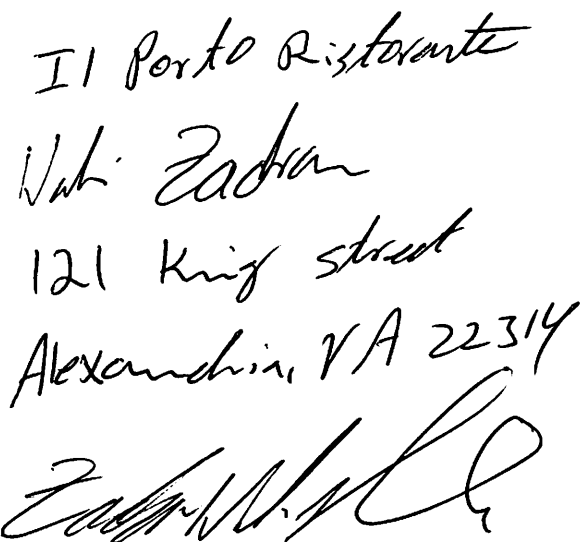 Il Porto Ristorante
Wahi Zadran
121 King street
Alexandria, VA 22314